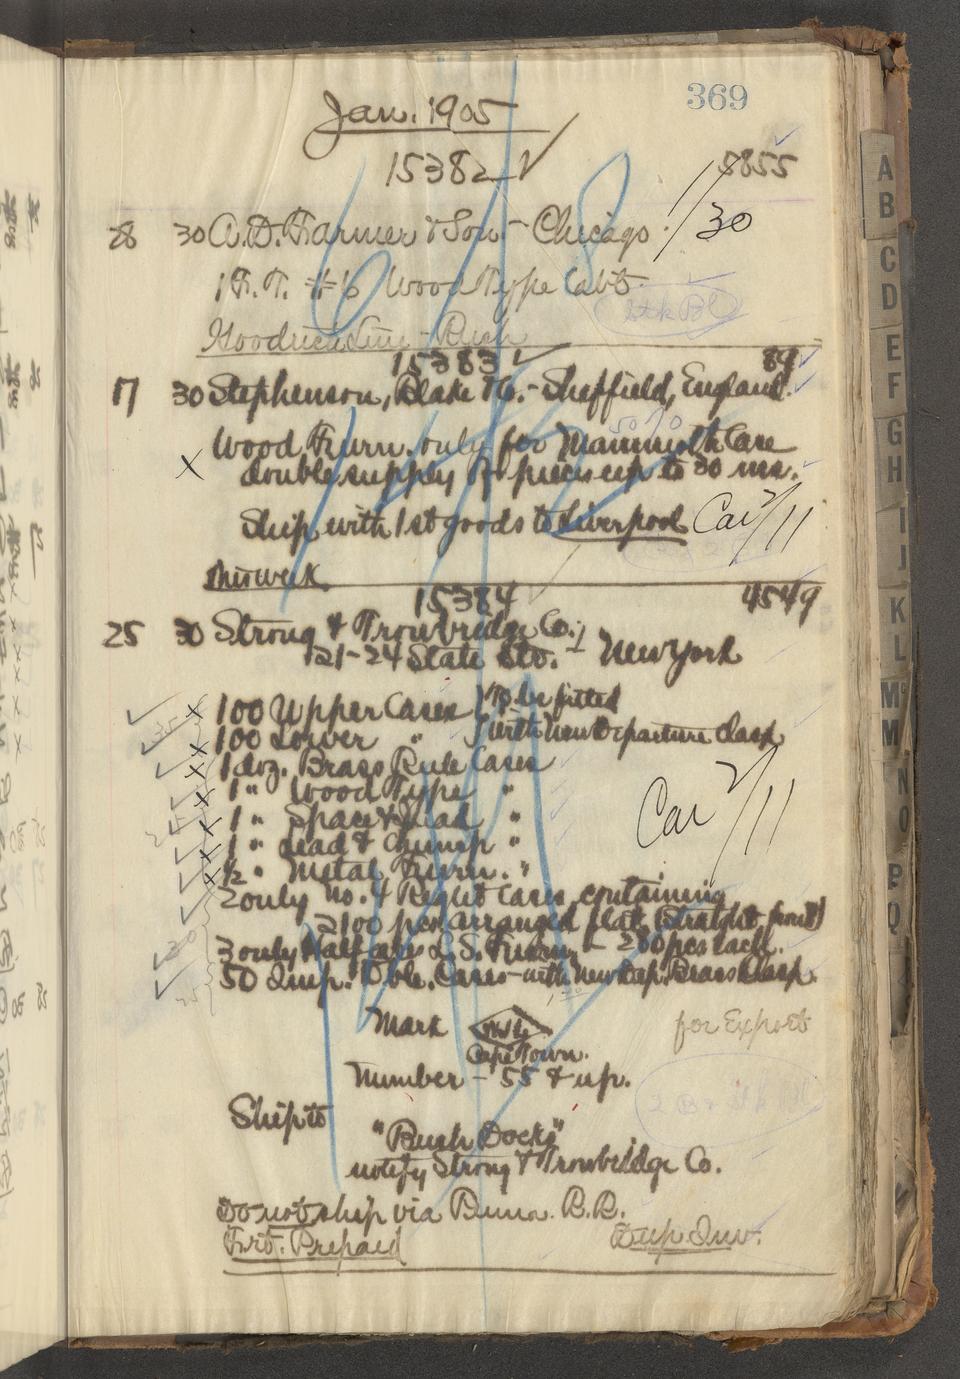 369
Jan. 1905
15382 ✓ 5855
28 30 A.D. Farmer & Son - Chicago. 1/30
1 F.T. #6 Wood Type Cabt.
Stk Bl
Goodrich Line - Rush
15383 ✓ 84
17 30 Stephenson, Blake & Co. - Sheffield, England.
50%
Wood Furn. only for Mammoth Case
x double supply of pieces up to 30 ms.
Ship with 1st goods to Liverpool Car 2/11
This week
15384 4549
25 30 Strong & Trowbridge Co.,
21-24 State Sts. - New York
x 100 Upper Cases } To be fitted
x 100 Lower " } with New Departure Clasp
x 1 doz. Brass Rule Cases
x 1 " Wood Type "
x 1 " Space & Quad "
x 1 " Lead & Slug "
x ½ " Metal Furn. "
Car 2/11
2 only No. 4 Reglet Cases, containing
2100 pcs. arranged flat (Straight front)
3 only Half Cases L.S. Furn. - 280 pcs each.
50 Imp. Dble. Cases - with New Dep. Brass Clasp.
Mark
Cape Town.
for Export
Number - 55 & up.
Ship to
"Bush Docks"
notify Strong & Trowbridge Co.
Do not ship via Penna. R.R.
Frt. Prepaid Dup. Inv.
A
B
C
D
E
F
G
H
I
J
K
L
Mc
M
N
O
P
Q